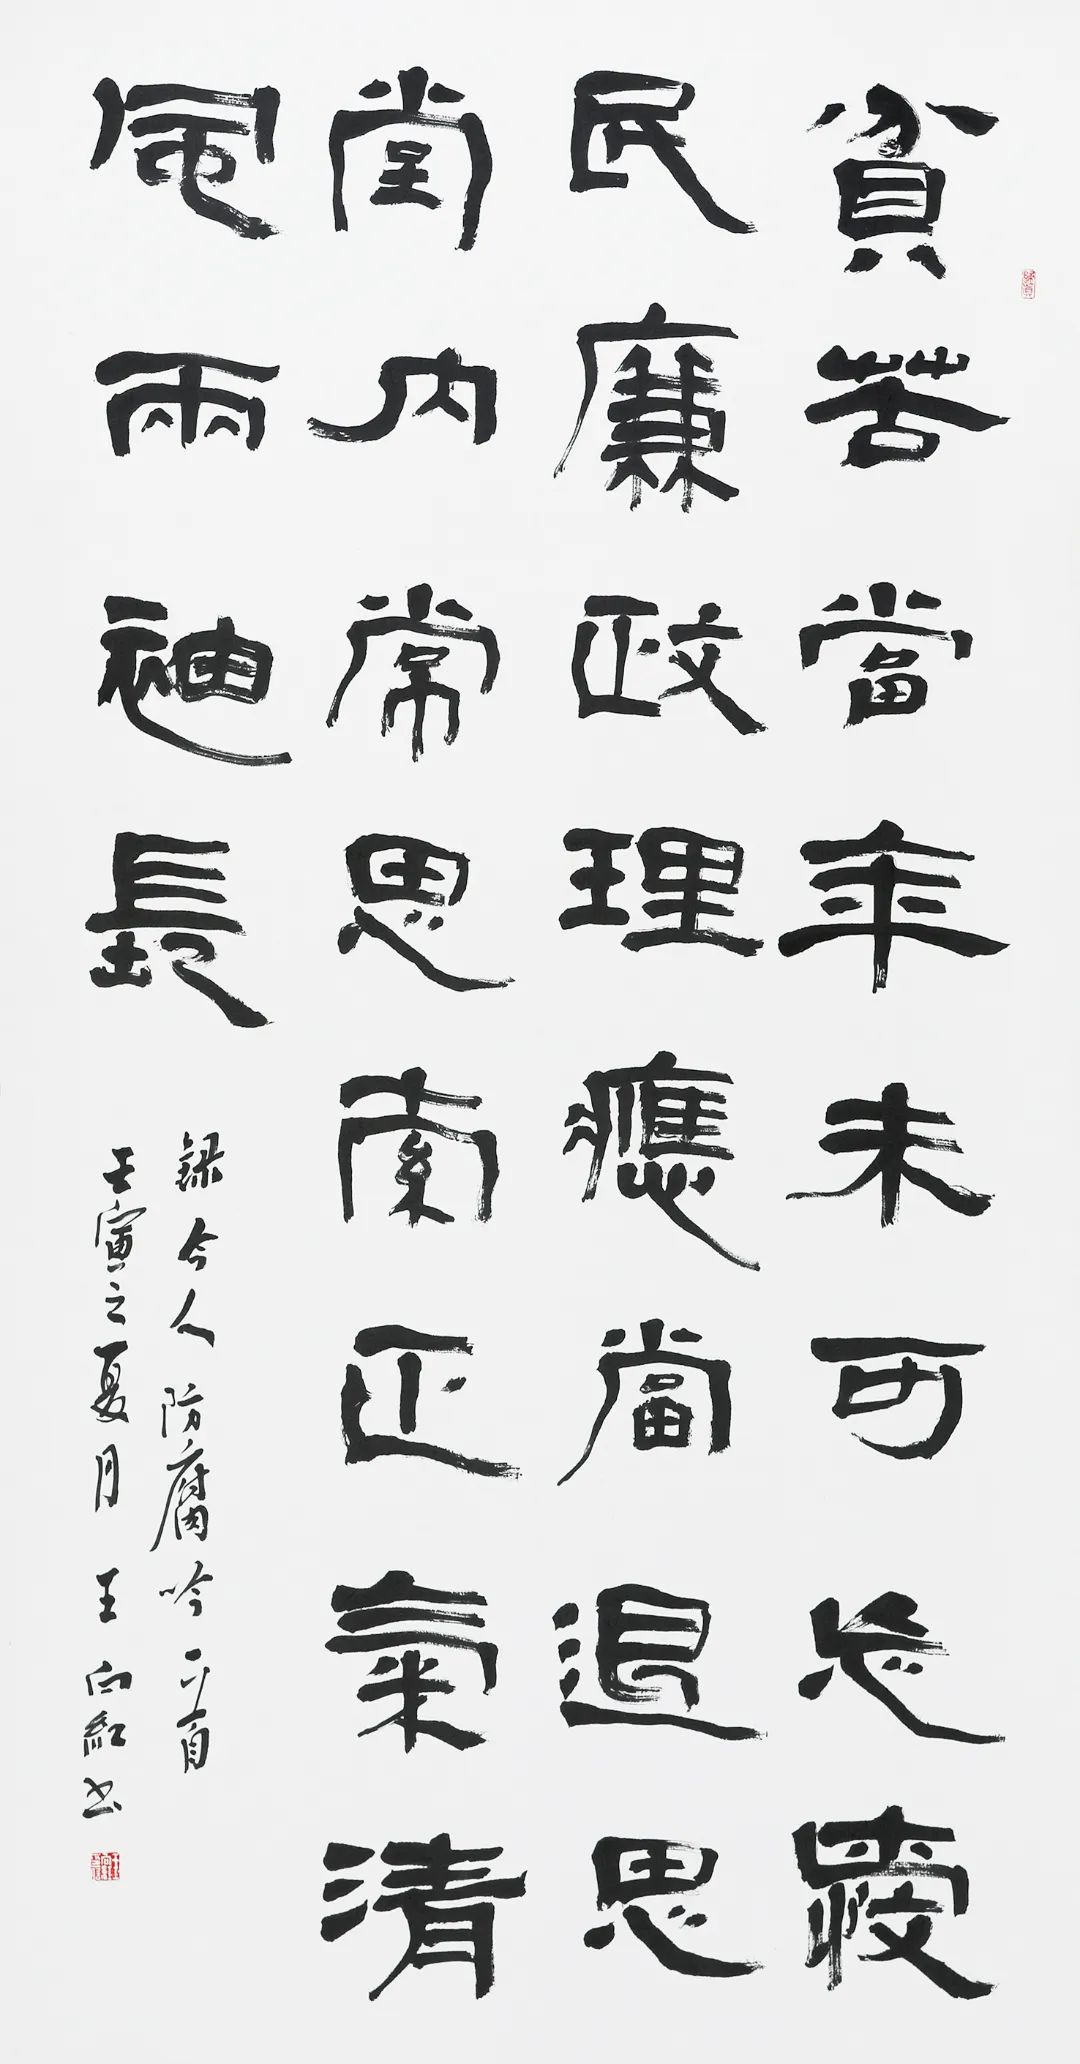 貧苦當年未可忘愛
民廉政理應當退思
堂內常思索正氣清
風兩袖長
録今人防腐吟一首
壬寅之夏月王向紅书